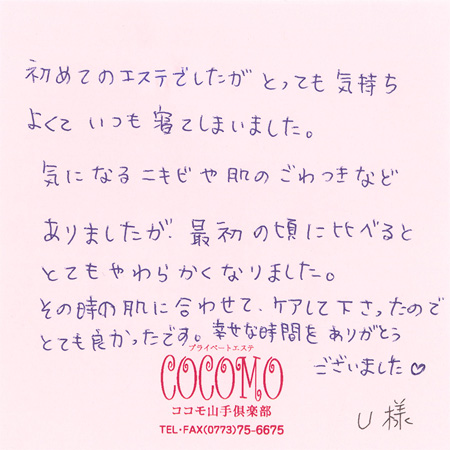 初めてのエステでしたが とっても 気持ち
よくて いつも 寝てしまいました。
気になる ニキビや 肌の ごわつきなど
ありましたが、最初の頃に比べると
とてもやわらかくなりました。
その時の肌に合わせて、ケアして下さったので
とても良かったです。幸せな時間を ありがとう
ございました♡
プライベートエステ
COCOMO
ココモ山手倶楽部
TEL・FAX(0773)75-6675
U様